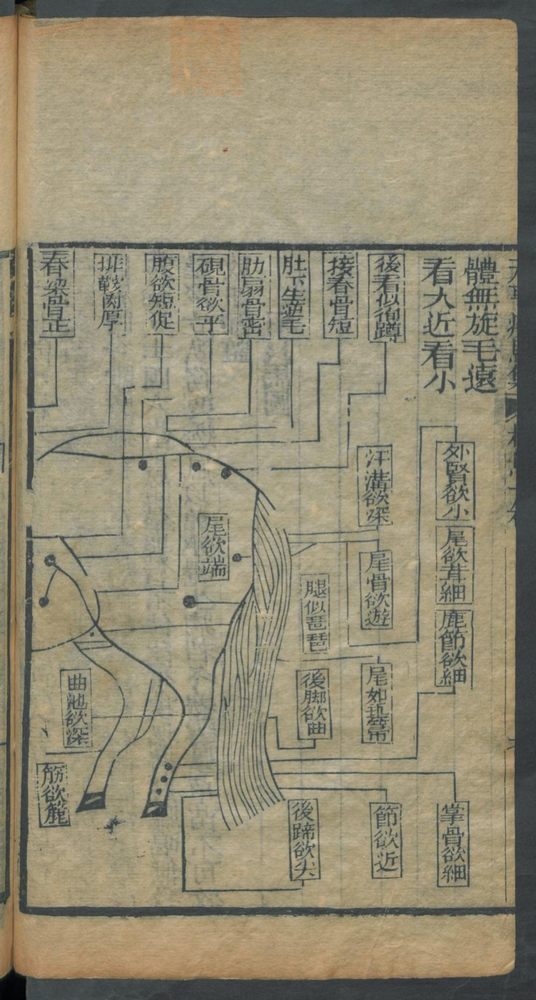 體無旋毛遠
看大近看小
後看似獨蹲
接脊骨短
肚下生逆毛
肋扇骨密
硯骨欲平
腹欲短促
排鞍肉厚
脊梁骨正
外腎欲小
尾欲茸細
鹿節欲細
汗溝欲深
尾骨欲遊
尾如
尾欲端
腿似琵琶
後脚欲曲
曲池欲深
筋欲麄
後蹄欲尖
節欲近
掌骨欲細